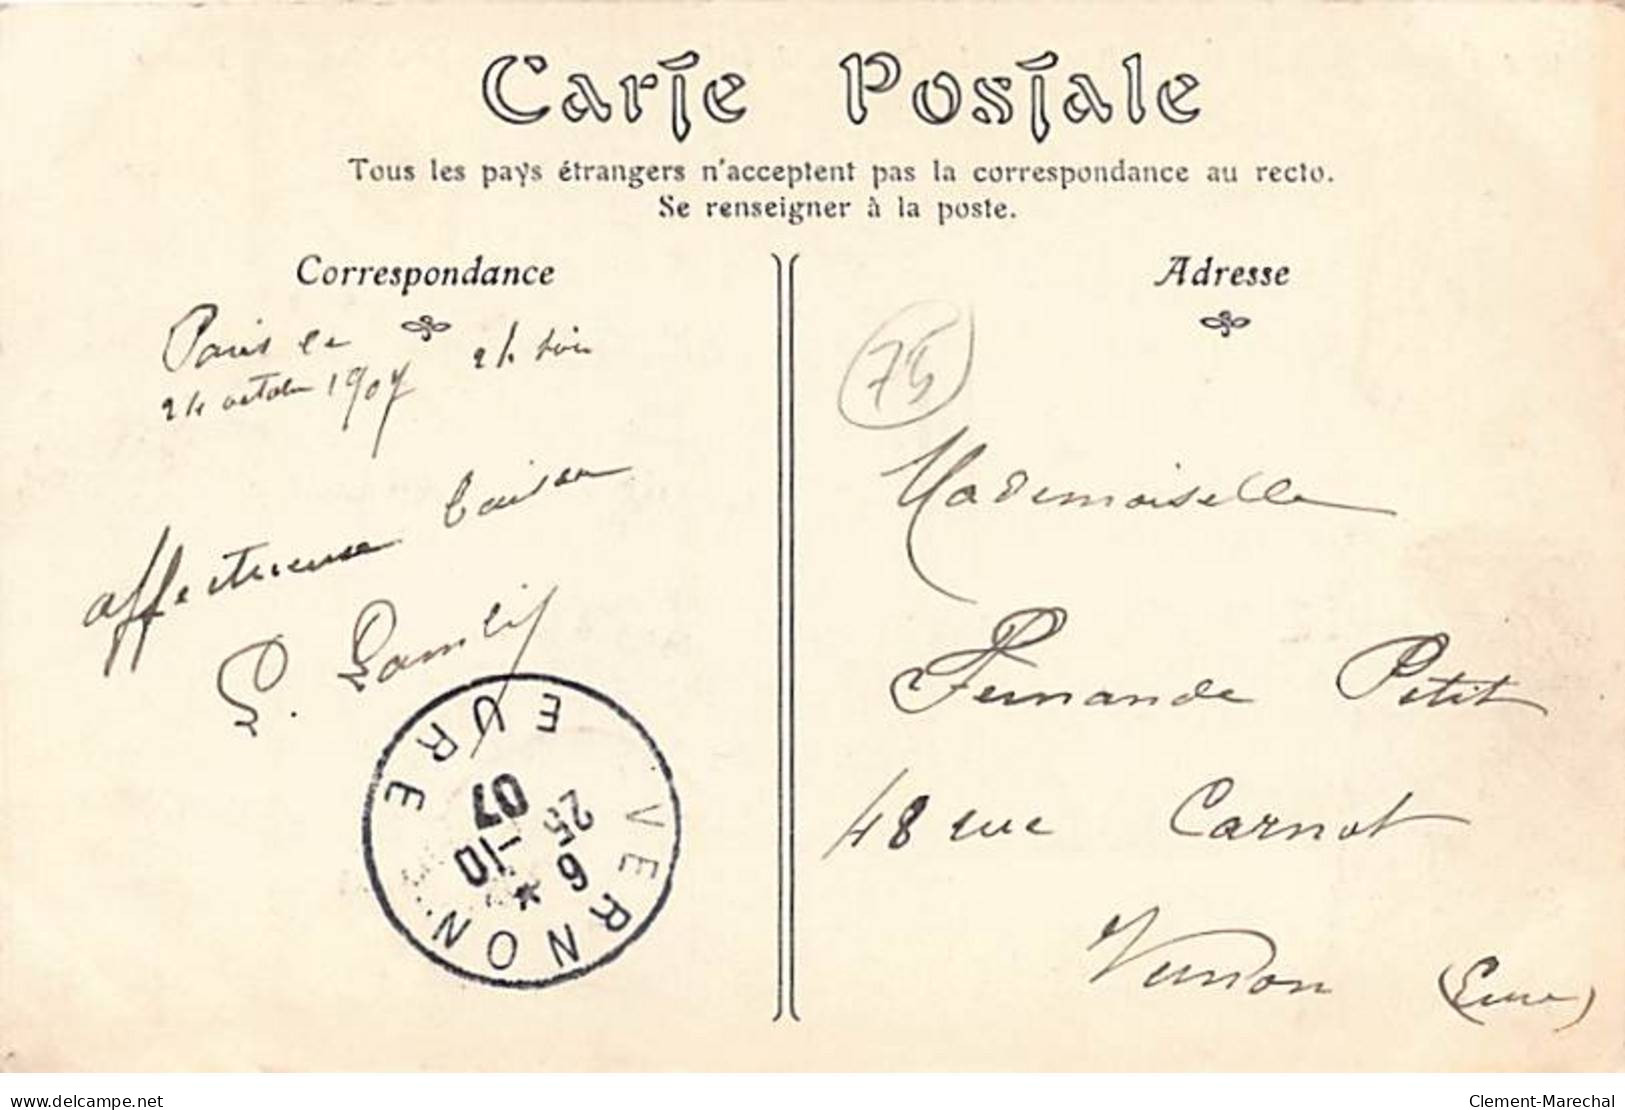 Carte Postale
Tous les pays étrangers n'acceptent pas la correspondance au recto.
Se renseigner à la poste.
Correspondance
Paris le
24 octobre 1907 2h soir
affectueux baiser
Adresse
75
Mademoiselle
Fernande Petit
48 rue Carnot
Vernon (Eure)
VERNON
EURE
6
25 -10
07
delcampe.net
Clement-Marechal